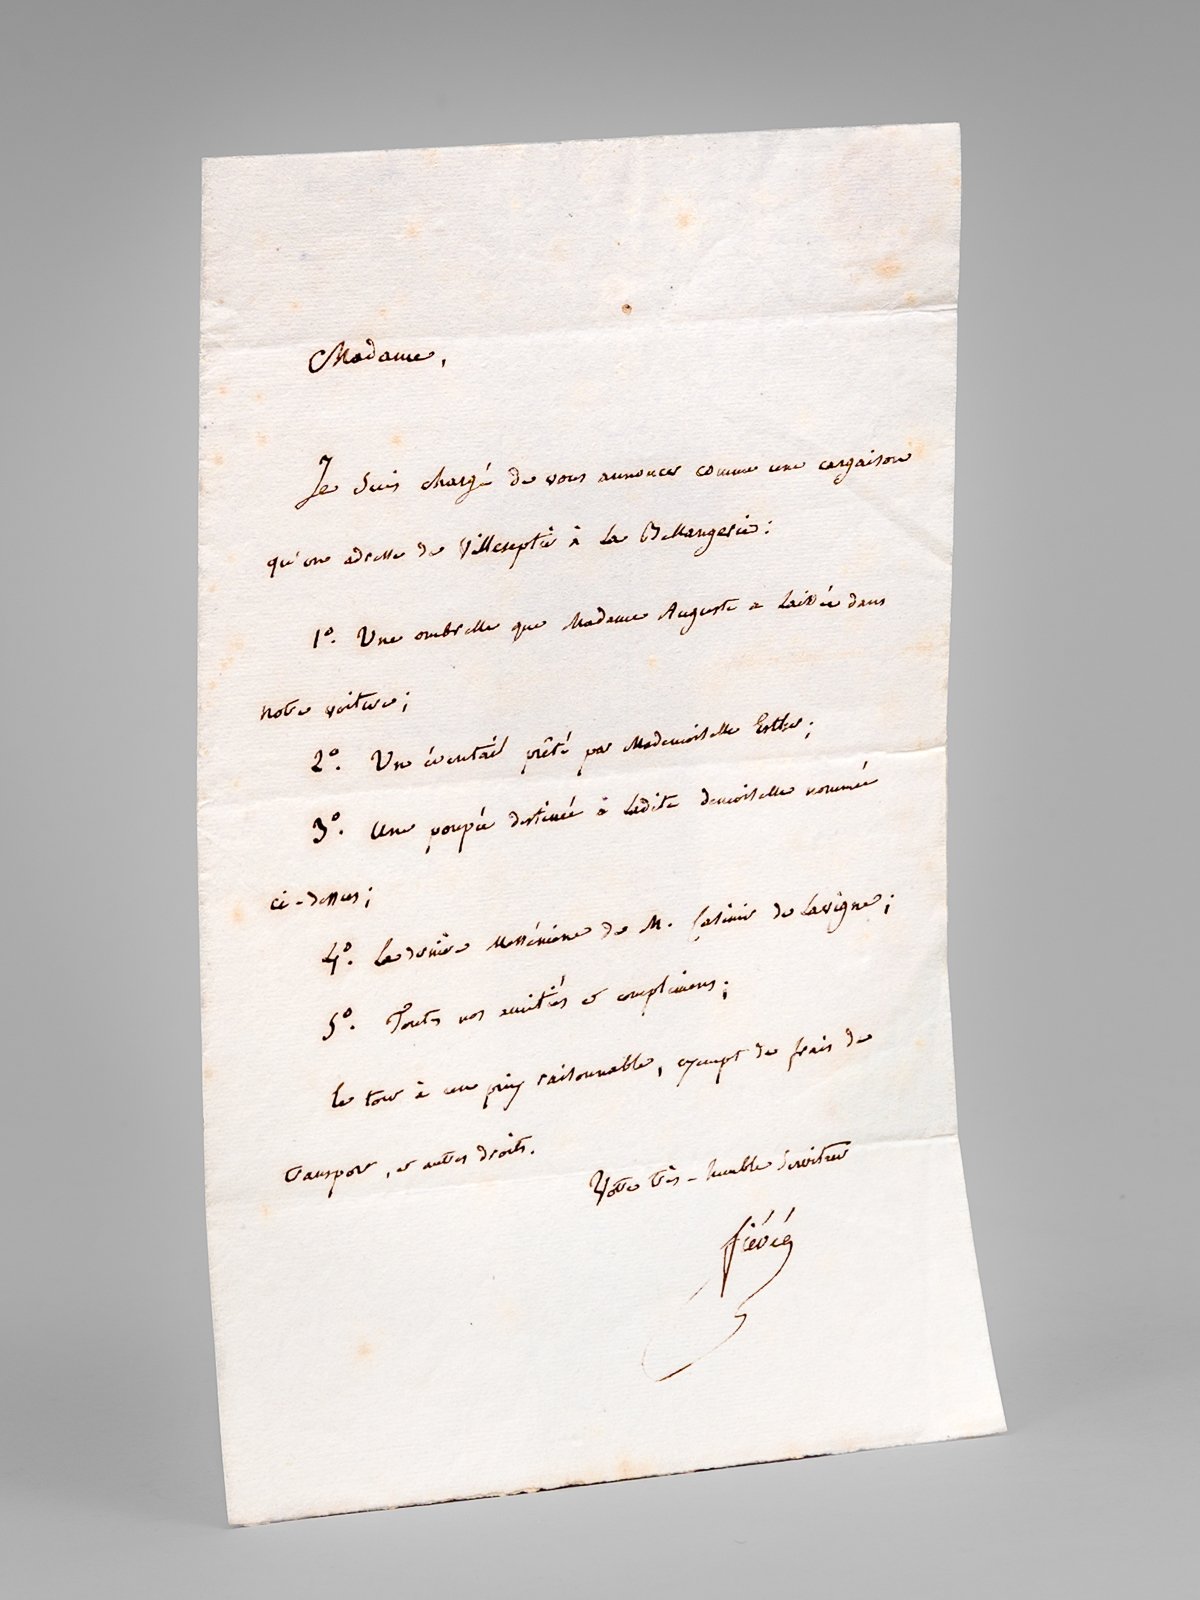 Madame,
Je suis chargé de vous annoncer comme une cargaison
qu'on adresse de Villeseptier à La Bellangerie:
1º. Une ombrelle que Madame Auguste a laissée dans
notre voiture;
2º. Un éventail prêté par Mademoiselle Esther;
3º. Une poupée destinée à ladite demoiselle nommée
ci-dessus;
4º. La dernière Messénienne de M. Casimir de Lavigne;
5º. Toutes nos amitiés et complimens;
le tout à un prix raisonnable, exempt de frais de
transport, et autres droits.
Votre très-humble serviteur
fiévée